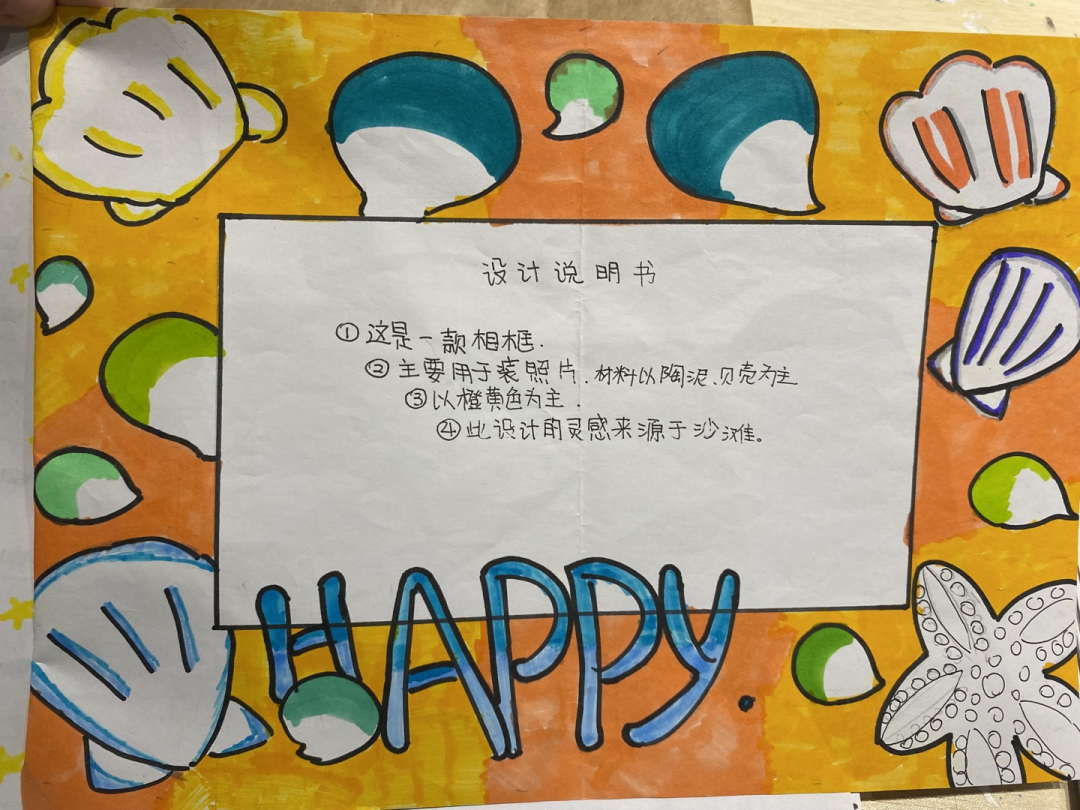 设计说明书
①这是一款相框.
②主要用于装照片.材料以陶泥、贝壳为主
③以橙黄色为主.
④此设计的灵感来源于沙滩。
HAPPY.